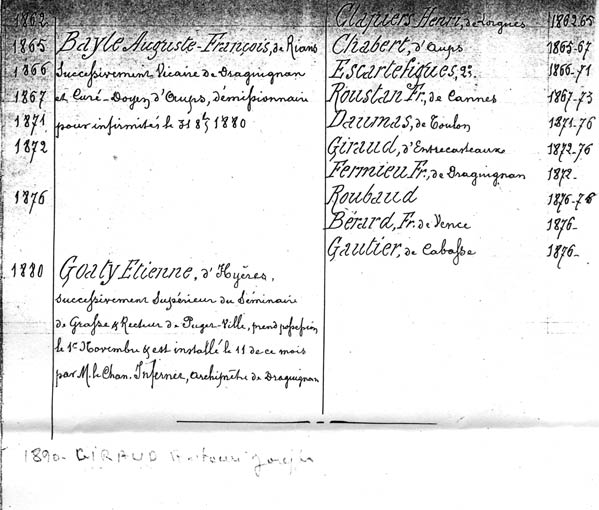 1862 Clapiers Henri, de Lorgues 1862 65
1865 Bayle Auguste-François, de Rians Chabert, d'Aups 1865-67
1866 Successivement Vicaire de Draguignan Escartefigues, 1866-71
1867 et Curé-Doyen d'Aups, démissionnaire Roustan Fr, de Cannes 1867-73
1871 pour infirmités le 31 8bre 1880 Daumas, de Toulon 1871-76
1872 Giraud, d'Entrecasteaux 1872-76
Fermieu Fr, de Draguignan 1872-
1876 Roubaud 1876-78
Bérard, Fr. de Vence 1876-
Gautier, de Cabasse 1876-
1880 Goaty Etienne, d'Hyères,
successivement Supérieur du Séminaire
de Grasse & Recteur de Puget-Ville, prend possession
le 1er Novembre & est installé le 11 de ce mois
par M. le Chan. Infernet, archiprêtre de Draguignan
1890 GIRAUD Joseph